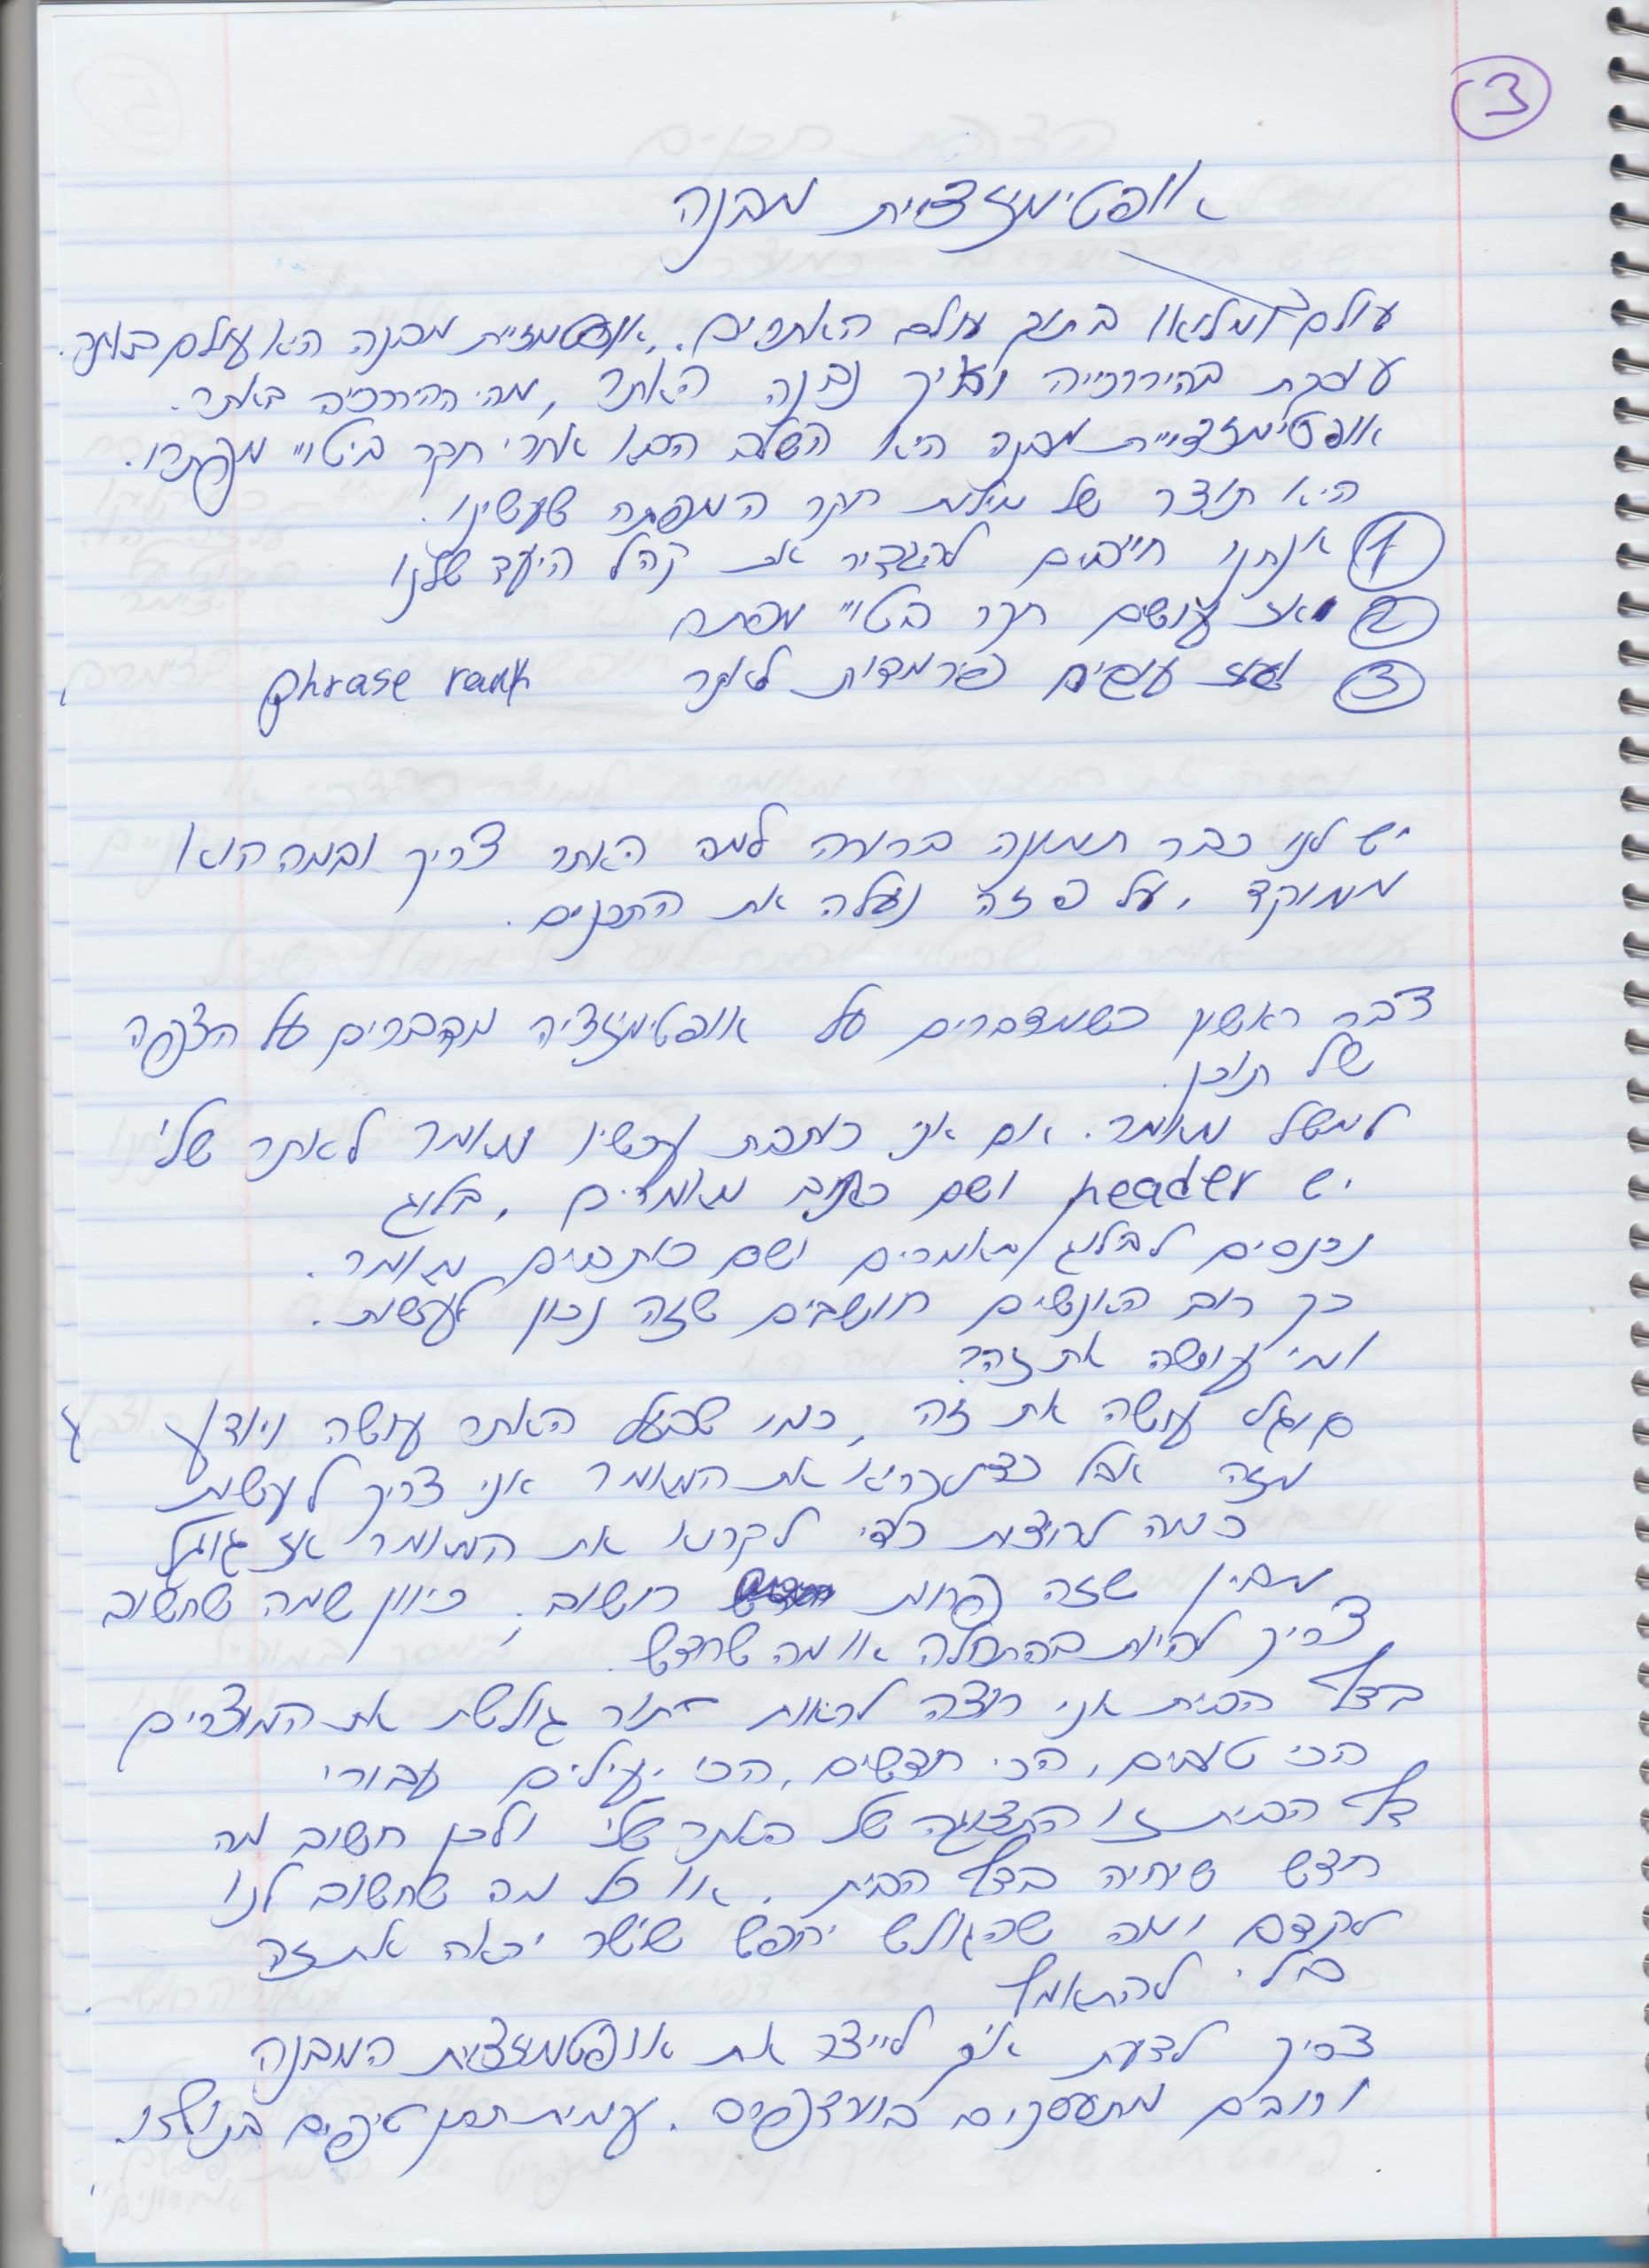 3
אופטימיזציית מבנה
עולם ומלואו בתוך עולם האתרים. אופטמזיית מבנה היא עולם
עוסקת בהיררכייה ואיך נבנה האתר, מהי ההיררכיה באתר.
אופטימזציית מבנה היא השלב הבא אחרי חקר ביטויי מפתח.
היא תוצר של מילות חקר המפתח שעשינו.
1 אנחנו חייבים להגדיר את קהל היעד שלנו
2 ואז עושים חקר בטויי מפתח
3 ואז עושים פירמדות לאתר phrase rank
יש לנו כבר תמונה ברורה למה האתר צריך ובמה הוא
ממוקד, על פ זה נעלה את התכנים.
דבר ראשון כשמדברים על אופטימיזציה מדברים על הצפה
של תוכן.
למשל מאמר. אם אני כותבת עכשיו מאמר לאתר שלי
יש header ושם כתוב מאמרים, בלוג
נכנסים לבלוג/מאמרים ושם כותבים מאמר.
כך רוב האנשים חושבים שזה נכון לעשות.
ומי עושה את זה?
גוגל עושה את זה, כמו שבעל האתר עושה ויודע
מזה אבל כדי לקרוא את המאמר אני צריך לעשות
כמה לחיצות כדי לקרוא את המאמר אז גוגל
מבין שזה פחות חשוב, כיוון שמה שחשוב
צריך להיות בהתחלה או מה שחדש.
בדף הבית אני רוצה לראות בתור גולשת את המוצרים
הכי טובים, הכי חדשים, הכי יעילים עבורי
דף הבית זו התצוגה של האתר שלי ולכן חשוב מה
חדש שיהיה בדף הבית. או כל מה שחשוב לנו
לקדם ומה שהגולש יחפש שישר יראה את זה
בלי להתאמץ
צריך לדעת איך לייצר את אופטמיזציית המבנה
ורובם מתעסקים בוורדפרס. עמית תתן טיפים בנושא זו.